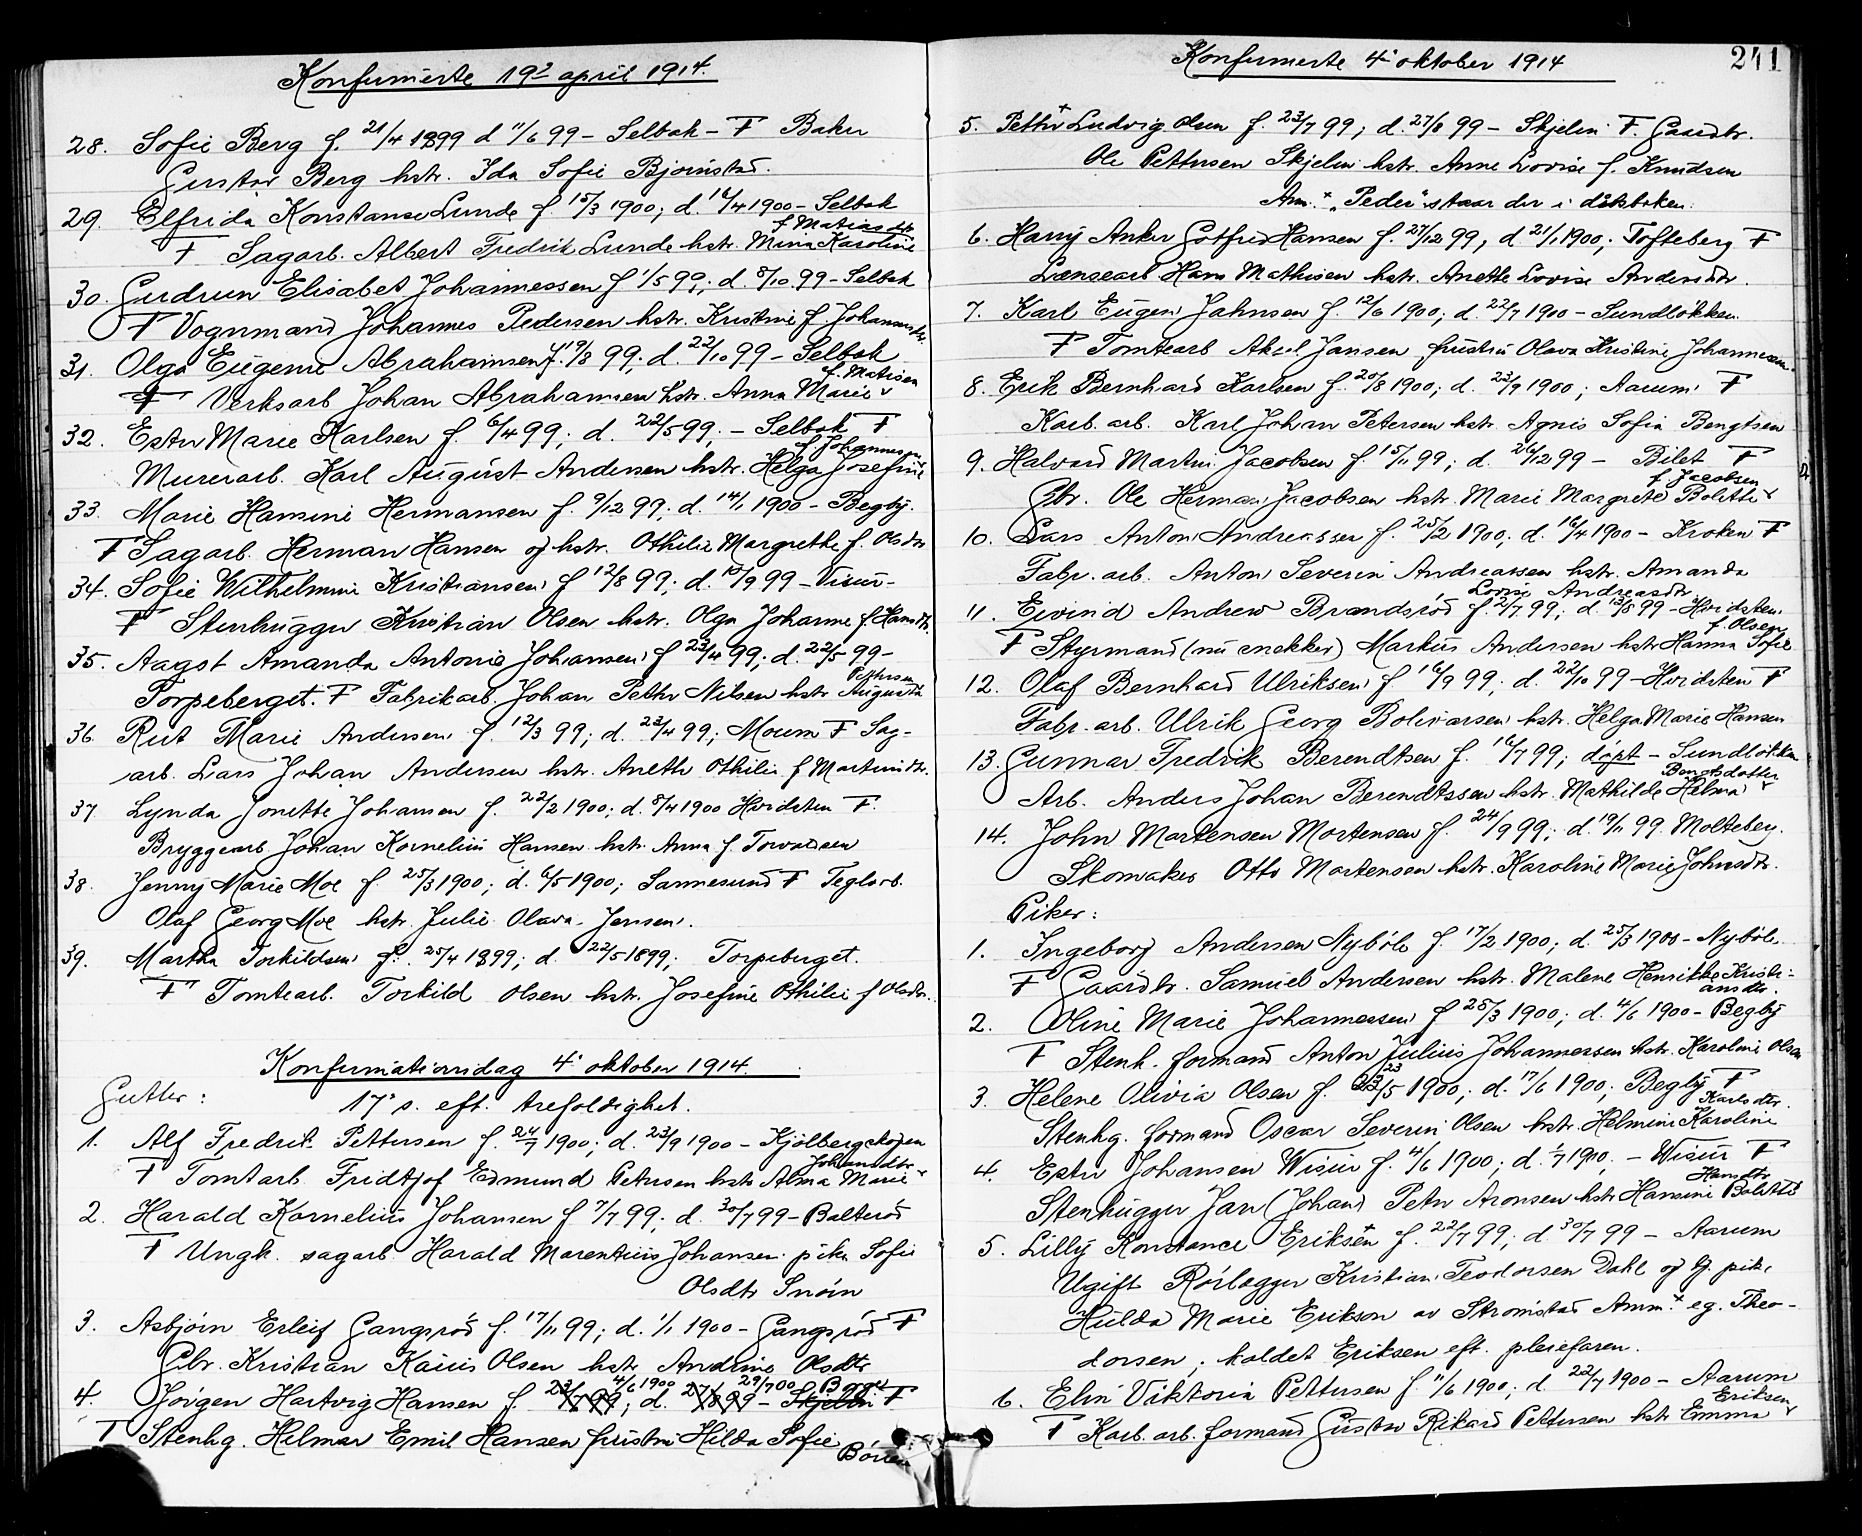 Konfirmerte 19de april 1914.
28. Sofie Berg f. 21/4 1899 d 11/6 99 - Selbak - F Baker
Gustav Berg hstr. Ida Sofie Bjørnstad.
29. Elfrida Konstanse Lunde f. 15/3 1900; d. 16/4 1900 - Selbak
F Sagarb. Albert Fredrik Lunde hstr. Mina Karoline f Matiasdtr
30. Gudrun Elisabet Johannessen f 1/5 99; d. 8/10 99 - Selbak
F Vognmand Johannes Pedersen hstr. Kristine f Johannesdtr.
31. Olga Eugenie Abrahamsen f. 19/8 99; d. 22/10 99 - Selbak
F Verksarb Johan Abrahamsen hstr. Anna Marie f. Matisen
32. Ester Marie Karlsen f. 6/4 99; d. 22/5 99; - Selbak F
Murerarb. Karl August Andersen hstr. Helga Josefine f Johannesen
33. Marie Hansine Hermansen f. 9/12 99; d. 14/1 1900 - Begby.
F Sagarb. Herman Hansen og hstr. Othilie Margrethe f. Olsdtr
34. Sofie Wilhelmine Kristiansen f 12/8 99; d. 10/9 99 - Visur -
F Stenhugger Kristian Olsen hstr. Olga Johanne f. Hansdtr.
35. Aagot Amanda Antonie Johansen f 23/4 99; d. 22/5 99 -
Torpeberget. F Fabrikarb. Johan Petter Nilsen hstr Augusta Pettersen
36. Rut Marie Andersen f. 12/3 99; d. 23/4 99; Moum F Sag-
arb. Lars Johan Andersen hstr. Anette Othilie f Martinsdtr.
37 Lynda Jonette Johansen f. 22/2 1900; d. 8/4 1900 Hvidsten F.
Bryggearb Johan Kornelius Hansen hstr. Anna f. Torvaldsen
38. Jenny Marie Moe f. 25/3 1900; d. 6/5 1900; Sannesund F Teglarb.
Olaf Georg Moe hstr. Julie Olava Jensen.
39. Martha Torkildsen f. 25/4 1899; d. 22/5 1899; Torpeberget.
F Tomtearb. Torkild Olsen hstr. Josefine Othilie f Olsdtr.
Konfirmationsdag 4' oktober 1914.
Gutter: 17' s. eft. trefoldighet.
1. Alf Fredrik Pettersen f. 24/7 1900; d. 23/9 1900 - Kjølbergskogen
F Tomtarb. Fridtjof Edmund Petersen hstr Alma Marie Johansdtr
2. Harald Kornelius Johansen f 7/7 99; d. 30/7 99 - Balterød
F Ungk. sagarb. Harald Marentius Johansen pike Sofie
Olsdtr Snøin
3. Asbjørn Erleif Gangsrød f. 17/11 99; d. 1/1 1900 - Gangsrød F
Gbr. Kristian Kaius Olsen hstr. Andrine Olsdtr
4. Jørgen Hartvig Hansen f 23/7 99 4/6 1900; d. 27/8 99 29/7 00 - Skjelin F
F Stenhg. Hilmar Emil Hansen hustru Hilda Sofie Børresen
Konfirmerte 4' oktober 1914
241
5. Petter+ Ludvig Olsen f. 23/7 99; d. 27/8 99 - Skjelin F. Gaardbr.
Ole Pettersen Skjelin hstr. Anne Lovise f. Knudsen
Anm. + "Peder" staar der i dåbsboken.
6. Harry Anker Gotfred Hansen f. 27/12 99, d 21/1 1900; Tofteberg F
Lænsearb Hans Mathisen hstr. Anette Lovise Andersdtr.
7. Karl Eugen Jahnsen f. 12/6 1900; d. 22/7 1900 - Sundløkken.
F Tomtearb Aksel Jansen hustru Olava Kristine Johannesen
8. Erik Bernhard Karlsen f. 20/8 1900; d. 23/9 1900; Aarum F
Karb. arb. Karl Johan Petersen hstr. Agnis Sofia Bengtsen
9. Halvard Martin Jacobsen f. 15/11 99; d. 26/12 99 - Bilet F
Gbr. Ole Herman Jacobsen hstr. Marie Margrete Bolette f Jacobsen
10. Lars Anton Andreassen f. 25/2 1900; d. 16/4 1900 - Kroken F
Fabr. arb. Anton Severin Andreassen hstr. Amanda
Lovise Andreasdtr
11. Eivind Andrew Brandsrød f. 2/7 99; d. 13/8 99 - Hvidsten.
F Styrmand (nu snekker) Markus Andersen hstr Hanna Sofie f. Olsen
12. Olaf Bernhard Ulriksen f 16/9 99; d. 22/10 99 - Hvidsten F
Fabr. arb. Ulrik Georg Bolivarsen hstr. Helga Marie Hansen
13. Gunnar Fredrik Berendtsen f. 16/7 99; døpt - Sundløkken
Arb. Anders Johan Berendtssen hstr. Mathilde Helma Bengtsdatter
14. John Martensen Mortensen f. 24/9 99; d. 19/11 99. Molteberg.
Skomaker Otto Martensen hstr. Karoline Marie Johnsdtr.
Piker:
1. Ingeborg Andersen Nybøle f. 17/2 1900; d. 25/3 1900 - Nybøle.
F Gaardbr. Samuel Andersen hstr. Malene Henrikke Kristi-
ansdtr.
2. Oline Marie Johannessen f 25/3 1900; d. 4/6 1900 - Begby
F Stenh. formand Anton Julius Johannessen hstr. Karoline Olsen
3. Helene Olivia Olsen f. 23/5 1900; d. 17/6 1900; Begby F
Stenhg. formand Oscar Severin Olsen hstr. Helmine Karoline Karlsdtr.
4. Ester Johansen Wisur f. 4/6 1900; d. 1/7 1900. - Wisur F
Stenhugger Jan (Johan) Peter Aronsen hstr Hansine Bolette Hansdtr
5. Lilly Konstance Eriksen+ f. 22/7 99; d 30/7 99 - Aarum
Ugift Rørlægger Kristian Teodorsen Dahl og g. pike
Hulda Marie Erikson av Strømstad Anm. + eg. Theo-
dorsen; kaldet Eriksen eft. pleiefaren.
6. Elin Viktoria Pettersen f. 11/6 1900; d 22/7 1900 - Aarum
F Karb. arb. formand Gustav Rikard Pettersen hstr Emma Eriksen